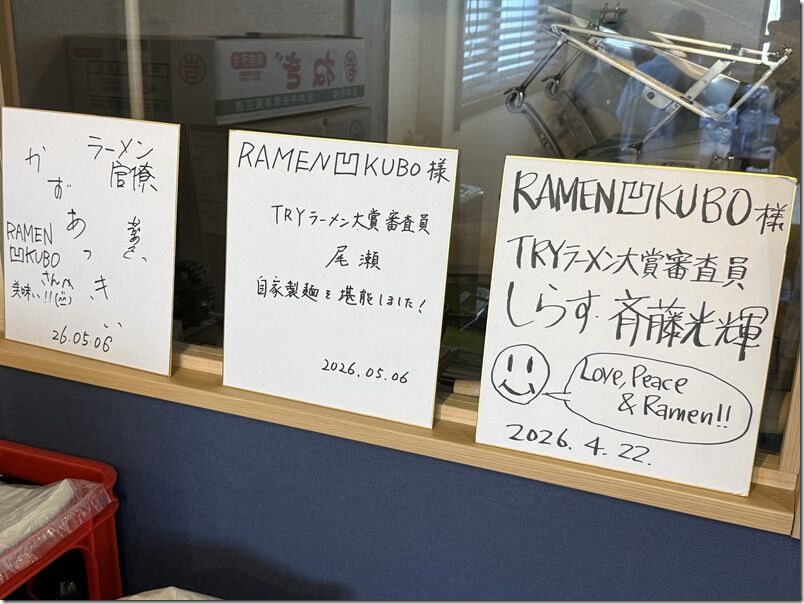 ラーメン
官僚
かずあっきぃ
RAMEN
凹KUBO
さんへ
美味い!!
26.05.06
RAMEN凹KUBO様
TRYラーメン大賞審査員
尾瀬
自家製麺を堪能しました!
2026.05.06
RAMEN凹KUBO様
TRYラーメン大賞審査員
しらす・斉藤光輝
Love, Peace
& Ramen!!
2026.4.22.
ねぎ